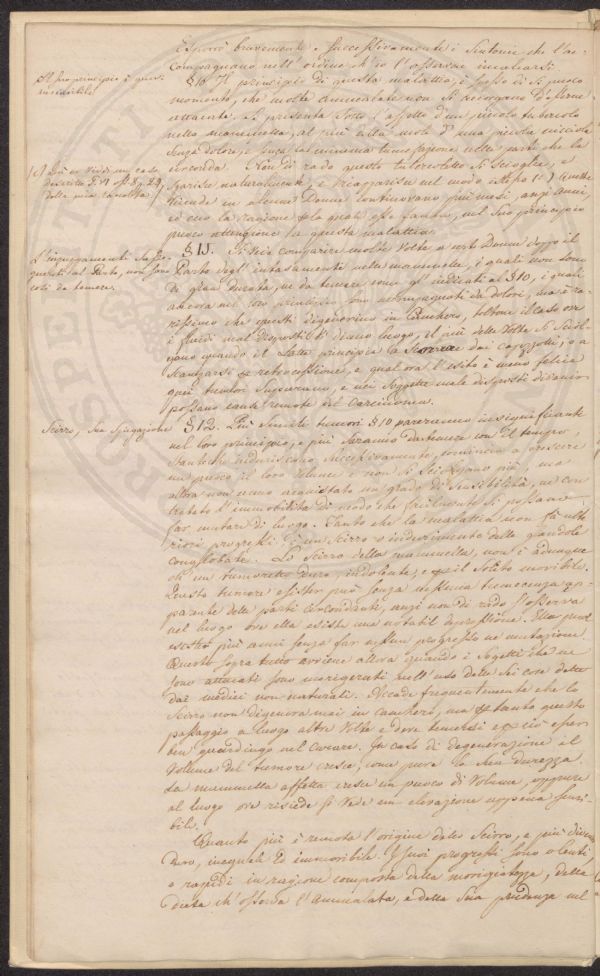 Esporrò brevemente e successivamente i Sintomi che l'ac-
compagnano nell'ordine ch'io l'osservai incalzarsi
Il suo principio è quasi
insensibile
§10 Il principio di questa malattia, è spesso di sì poco
momento, che molte ammalate non si accorgono d'esserne
attaccate. Si presenta sotto l'aspetto d'un piccolo tubercolo
nella mammella, al più della mole d'una piccola nicciola
senza dolore, e senza la minima tumefazione nelle parti che la
circonda. Non di rado questo tubercoletto si scioglie, e
sparisce naturalmente, e ricomparisce nel modo
vicende in alcune Donne continuano più mesi, anzi anni,
ed ecco la ragione per la quale esse fanno, nel suo principio
poco attenzione a questa malattia.
L'ingorgamenti
al Parto, non sono
così da temere.
§11. Si vede comparire molte volte a certe Donne doppo il
Parto degl'intasamenti nelle mammelle, i quali non sono
di gran durata, ne da temere come gl'indicati al §10, i quali
ancora nel loro principio sono accompagnati da dolori, ma è ra-
rissimo che questi digenerino in Canchero, toltone il caso ove
i fluidi mal disposti li diano luogo, il più delle volte si sciol-
gono quando il Latte principia a dai capezzoli, o a
scansarsi per retrocessione, e qual ora l'esito è meno felice
quei tumori suppurano, e nei soggetti male disposti divenir
possano cause remote del Carcinoma.
Scirro, sua spiegazione
§12. Più simili tumori §10 pareranno insignificanti
nel loro principio, e più saranno da temere con il tempo,
s'anche induriscono successivamente, comincia a crescere
un poco il loro volume e non si sciolgano più, ma
altra non meno acquistato un grado di sensibilità, ne con
tratto l'immobilità di modo che facilmente si possano
far mutare di luogo. Tanto che la malattia non fa ulte
riori progressi è un Scirro o indurimento delle glandole
conglobate. Lo Scirro della mammella, non è adunque
che un tumoretto duro, indolente, e per il solito movibile.
Questo tumore esister può senza nessuna tumecenza ap-
parente delle parti circondanti, anzi non di rado s'osserva
nel luogo ove ella esiste una notabil depressione. Ella può
esistere più anni senza far nessun progresso ne mutazione.
Questo sopra tutto avviene allora quando i Sogetti che ne
sono attaccati sono morigerati nell'uso delle sei cose dette
dai medici non naturali. Accade frequentemente che lo
Scirro non digenera mai in canchero, ma per tanto questo
passaggio a luogo altre volte e deve tenersi per ciò esser
ben guardingo nel curare. In caso di degenerazione il
volume del tumore cresce, come pure la sua durezza
La mammella affetta cresce un puoco di volume, oppure
al luogo ove risiede si vede un elevazione appena sensi-
bile.
Quanto più è remota l'origine dello Scirro, e più divien
duro, ineguale ed immobile. I suoi progressi sono o lenti
o rapidi in ragione composta della morigiatezza, della
dieta ch'osserva l'Ammalata, e della sua prudenza nel